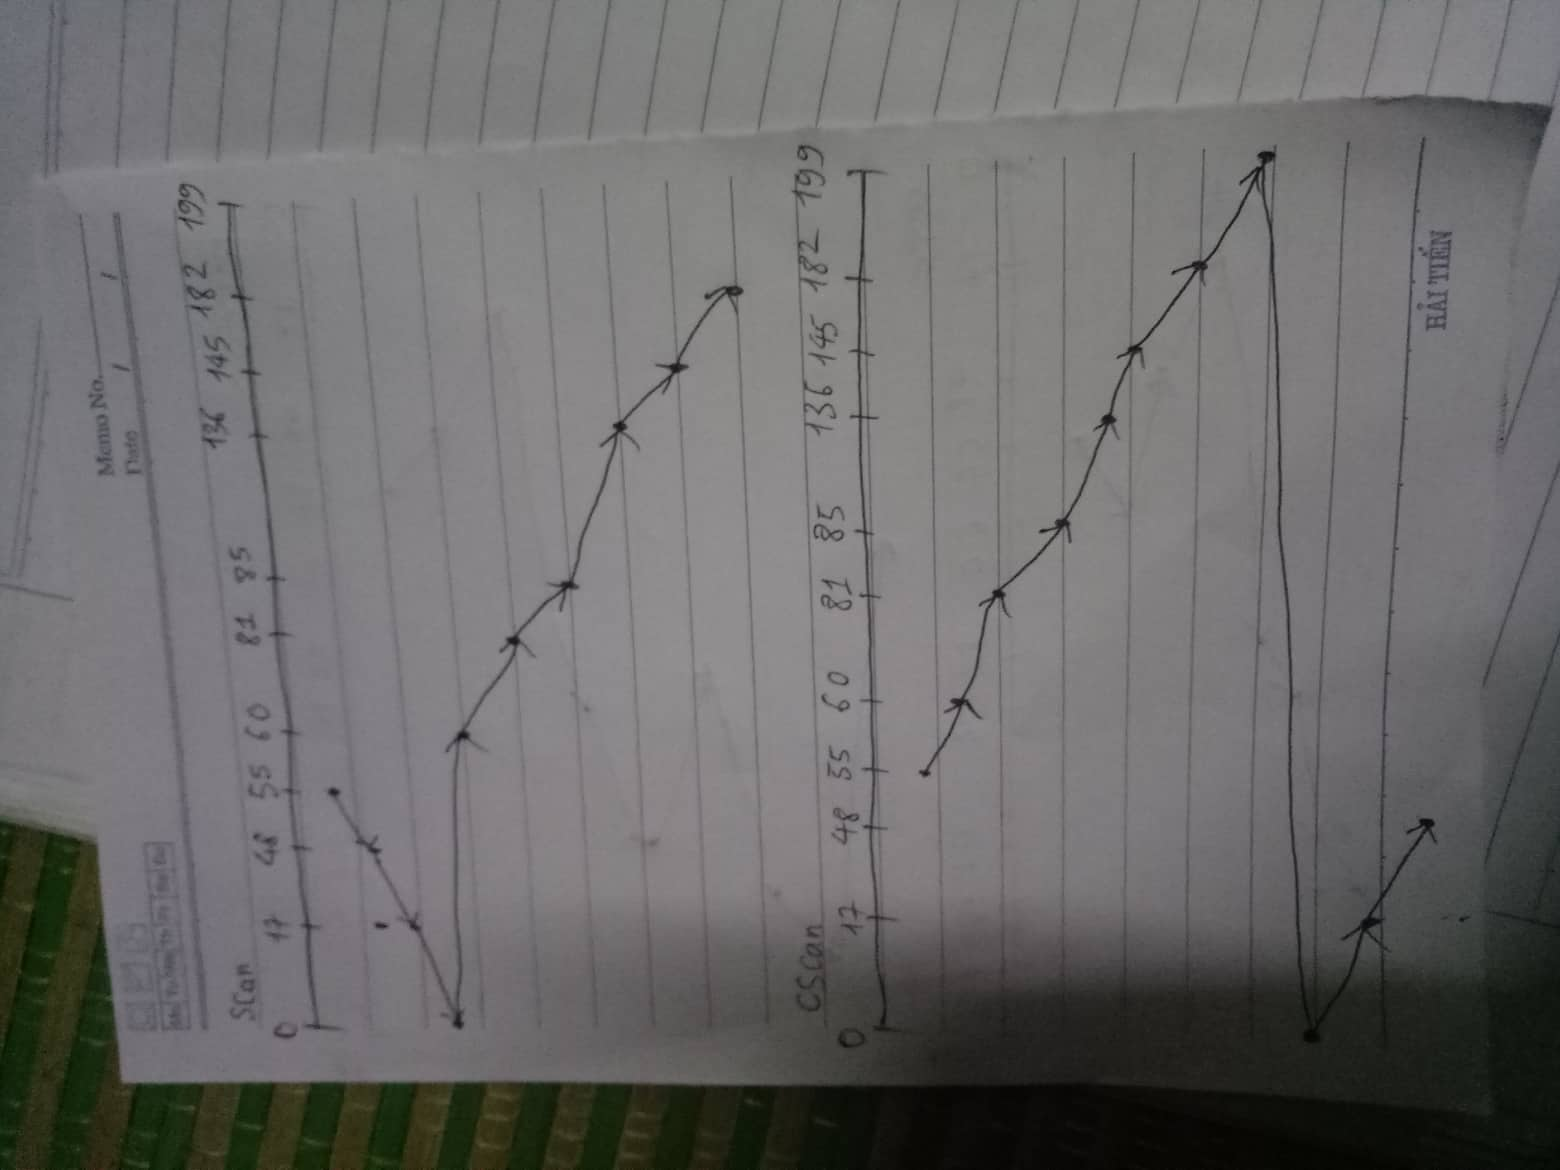 Memo No.
Date / /
SCan
0 17 48 55 60 81 85 136 145 182 199
CSCan
0 17 48 55 60 81 85 136 145 182 199
HẢI TIẾN